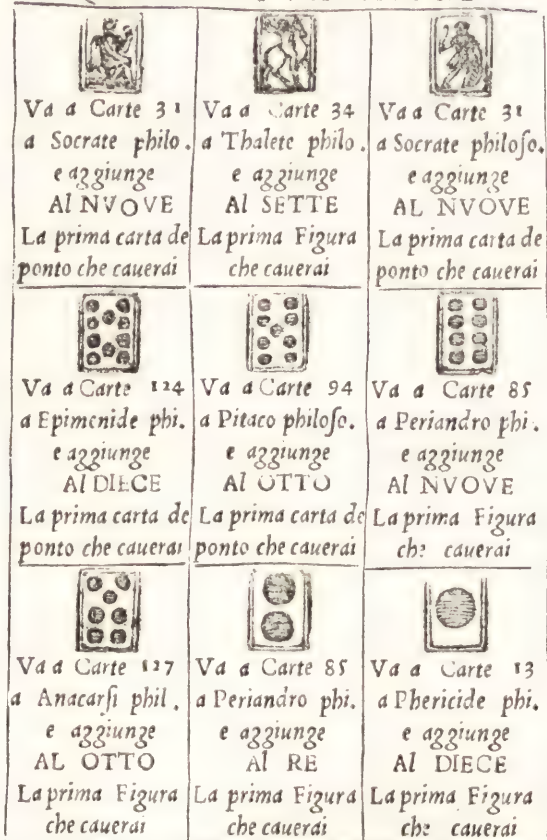 Va a Carte 31
a Socrate philo.
e aggiunge
Al NVOVE
La prima carta de
ponto che cauerai
Va a Carte 34
a Thalete philo.
e aggiunge
Al SETTE
La prima Figura
che cauerai
Va a Carte 31
a Socrate philoso.
e aggiunge
AL NVOVE
La prima carta de
ponto che cauerai
Va a Carte 124
a Epimenide phi.
e aggiunge
Al DIECE
La prima carta de
ponto che cauerai
Va a Carte 94
a Pitaco philoso.
e aggiunge
Al OTTO
La prima carta de
ponto che cauerai
Va a Carte 85
a Periandro phi.
e aggiunge
Al NVOVE
La prima Figura
che cauerai
Va a Carte 127
a Anacarsi phil.
e aggiunge
AL OTTO
La prima Figura
che cauerai
Va a Carte 85
a Periandro phi.
e aggiunge
Al RE
La prima Figura
che cauerai
Va a Carte 13
a Phericide phi.
e aggiunge
Al DIECE
La prima Figura
che cauerai